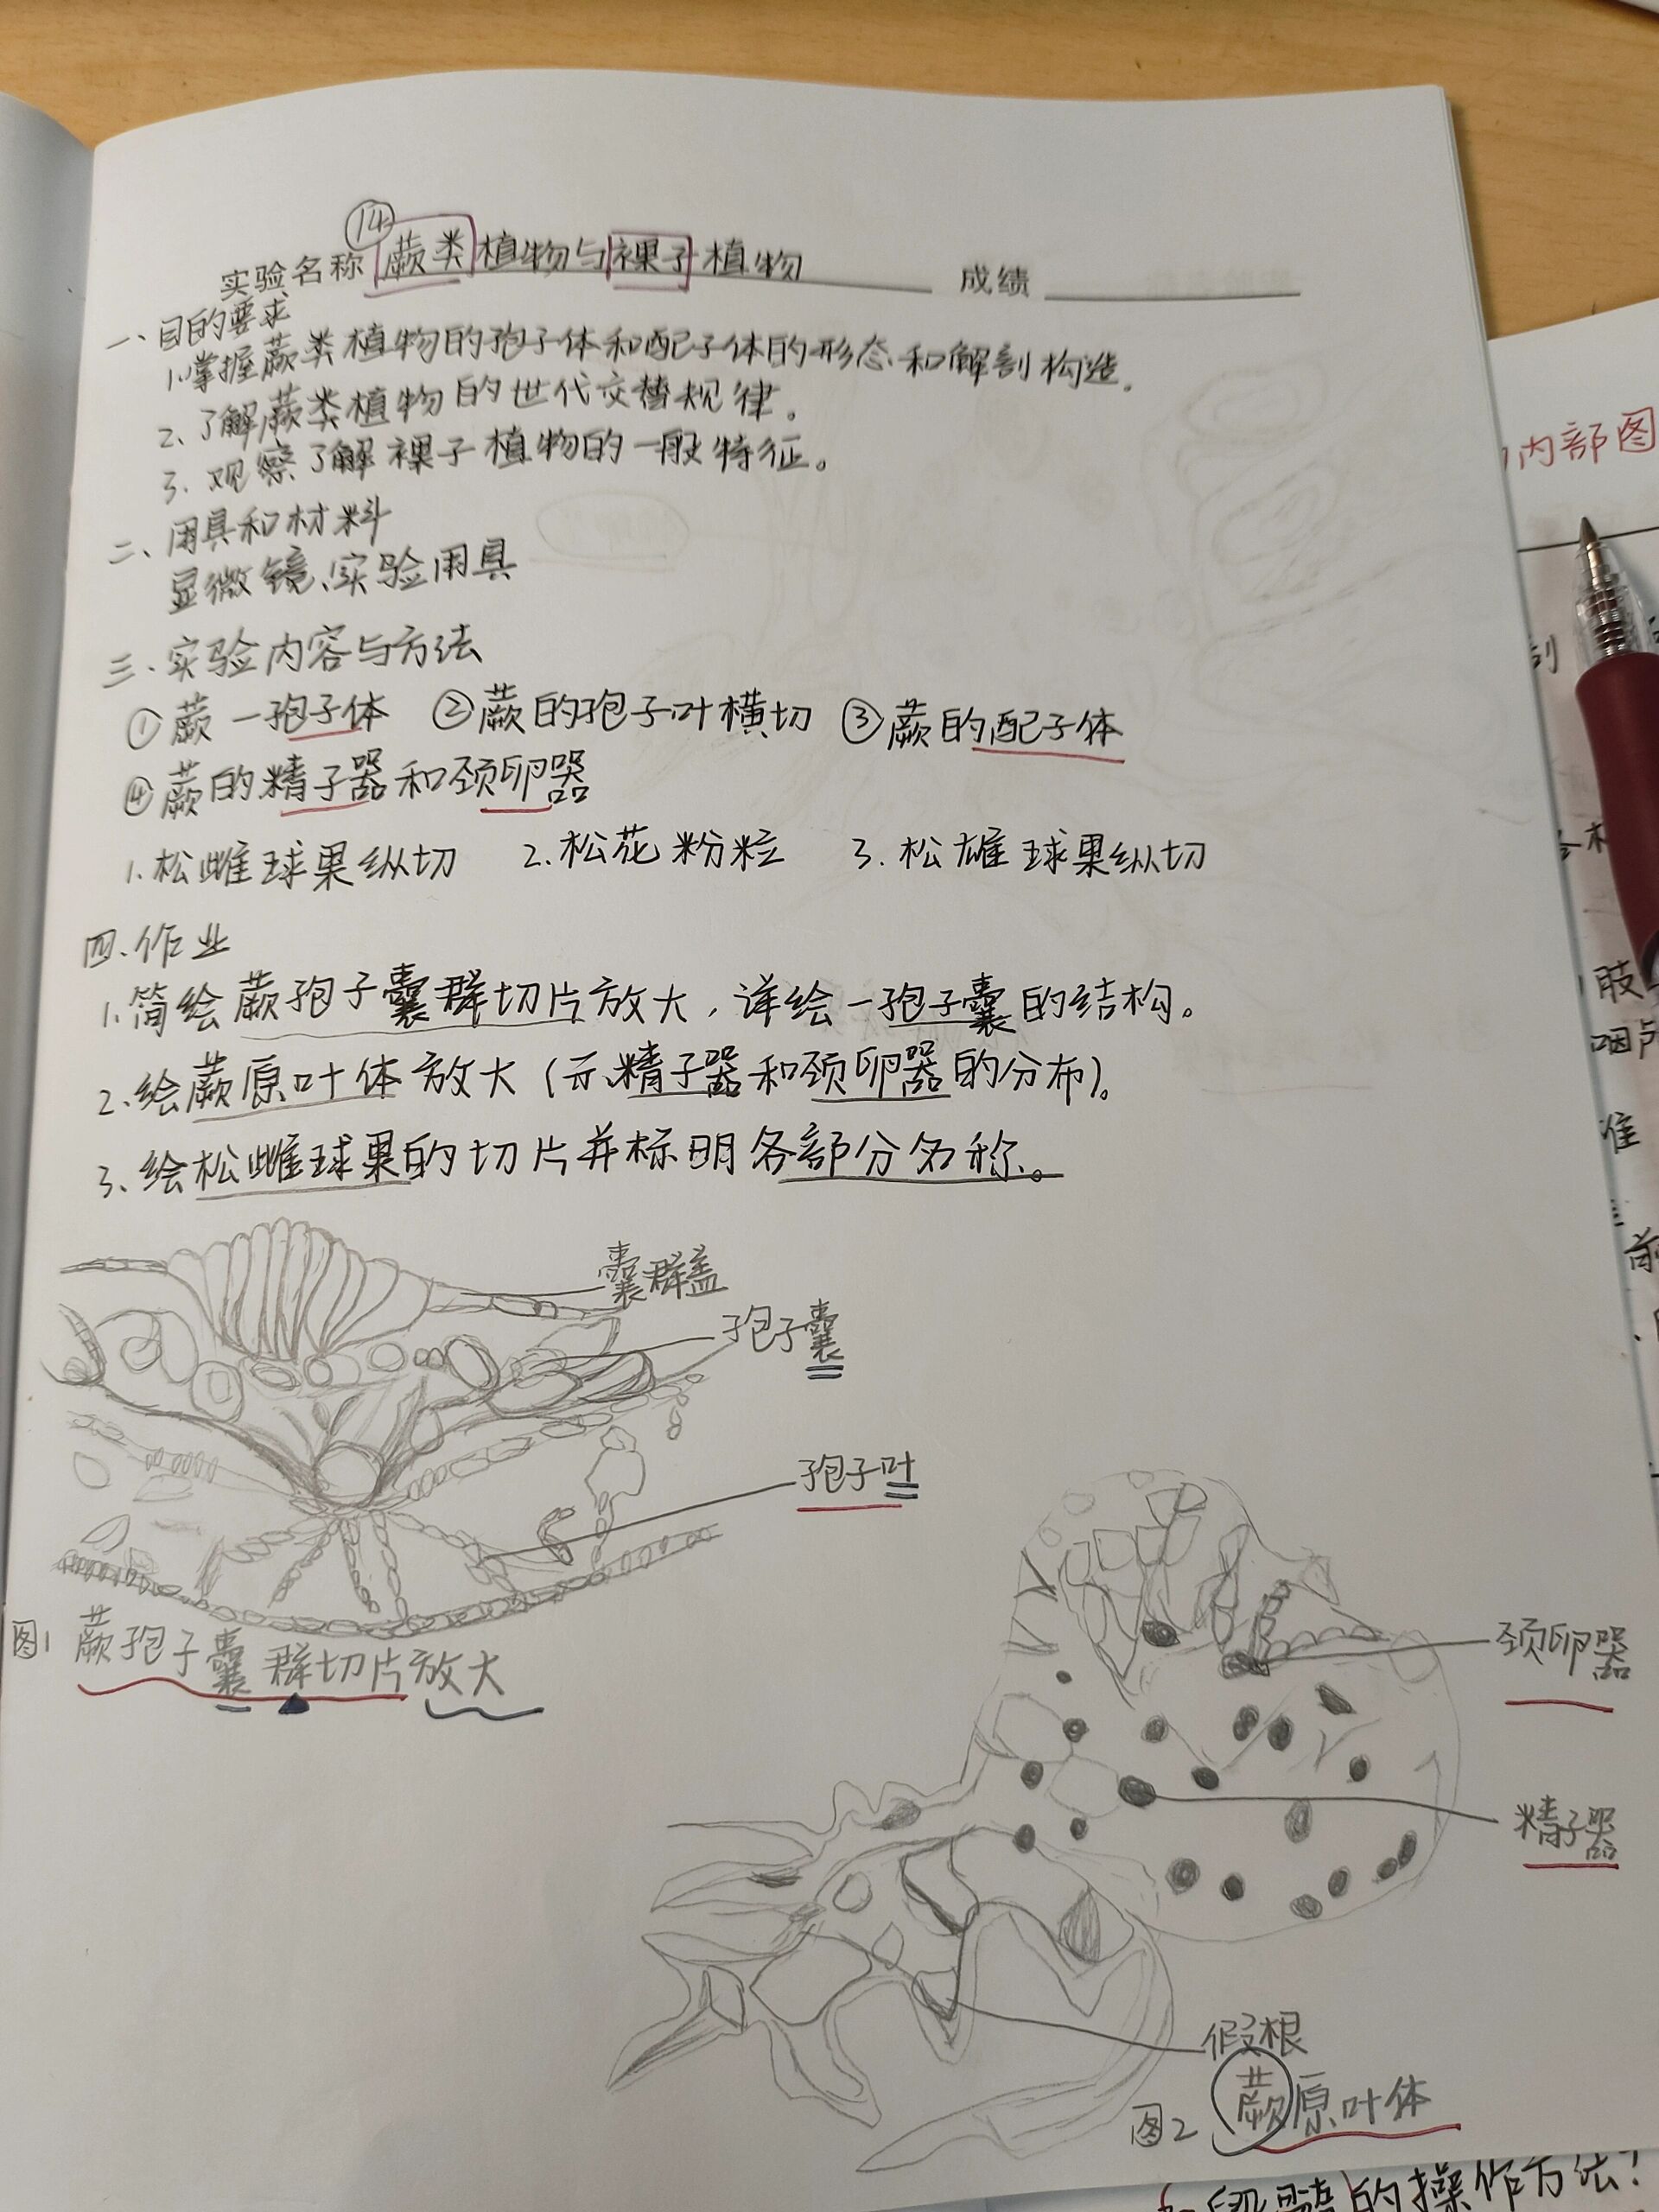 ⑭
实验名称 蕨类植物与裸子植物 成绩
一、目的要求
1.掌握蕨类植物的孢子体和配子体的形态和解剖构造。
2、了解蕨类植物的世代交替规律。
3、观察了解裸子植物的一般特征。
二、用具和材料
显微镜、实验用具
三、实验内容与方法
①蕨-孢子体 ②蕨的孢子叶横切 ③蕨的配子体
④蕨的精子器和颈卵器
1.松雌球果纵切 2.松花粉粒 3.松雄球果纵切
四、作业
1.简绘蕨孢子囊群切片放大,详绘一孢子囊的结构。
2.绘蕨原叶体放大(示精子器和颈卵器的分布)。
3、绘松雌球果的切片并标明各部分名称。
囊群盖
孢子囊
孢子叶
图1 蕨孢子囊群切片放大
颈卵器
精子器
假根
图2 蕨原叶体
内部图
肢
准
前
的操作方法?